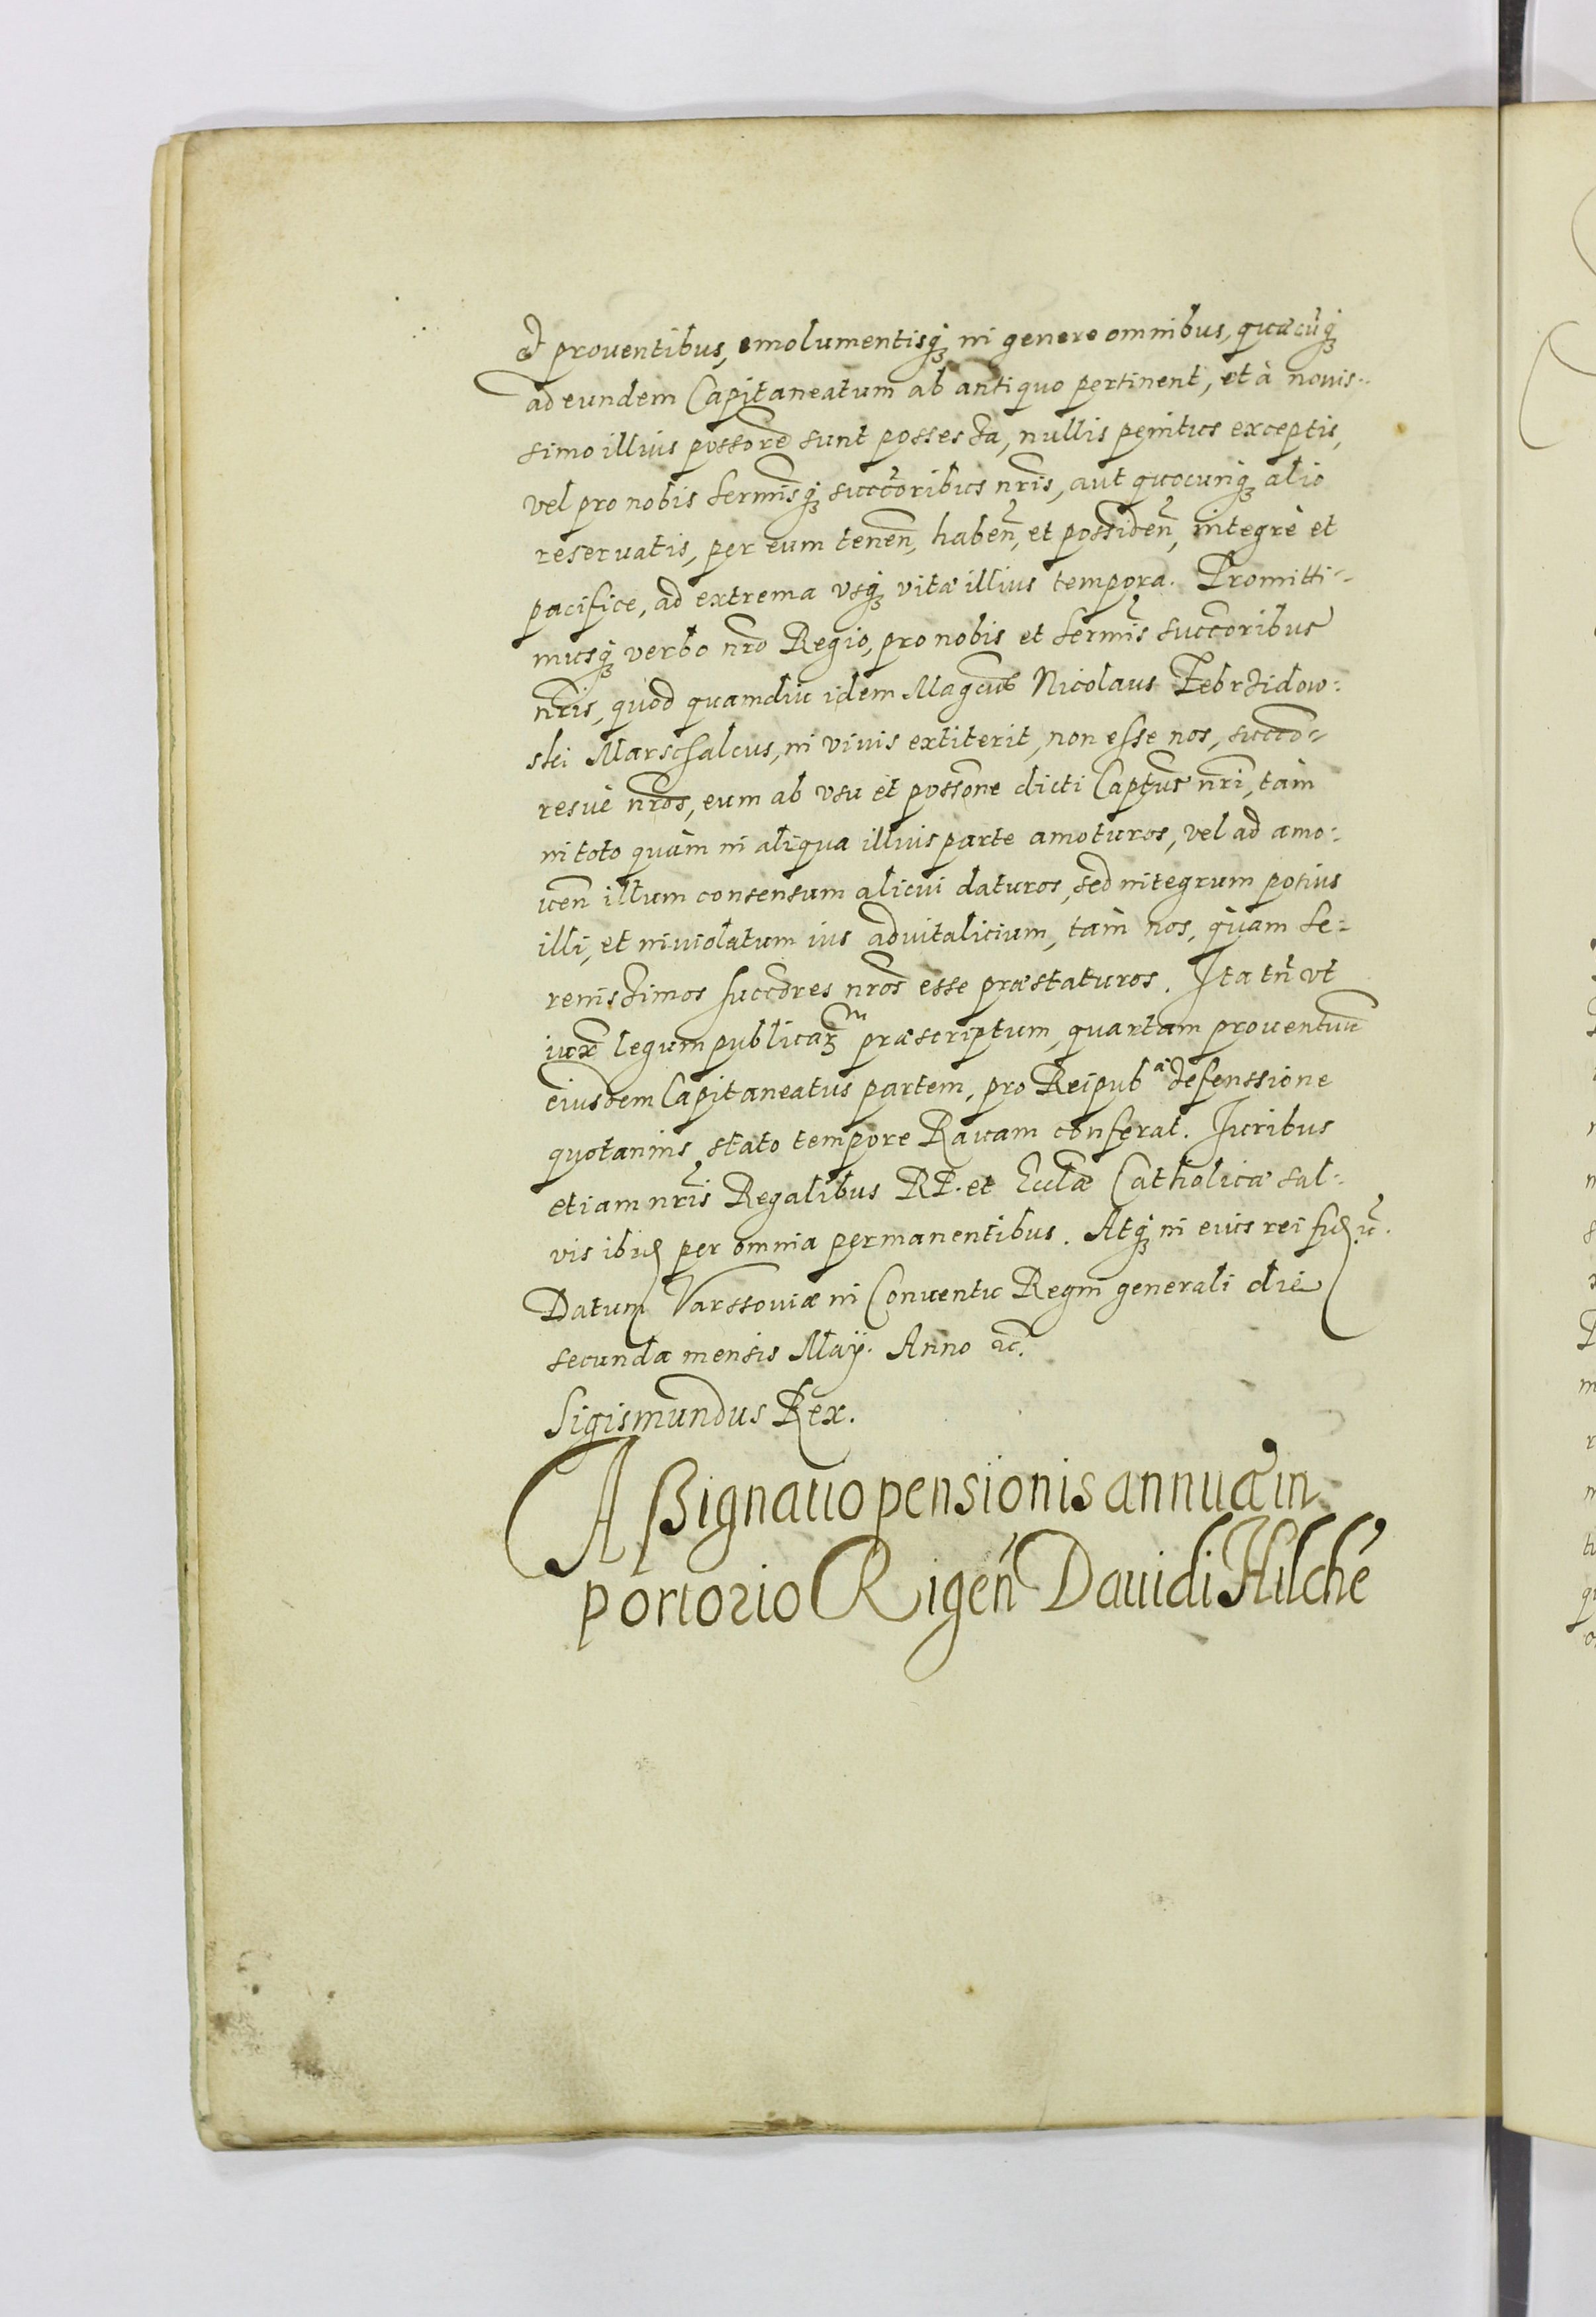 et prouentibus, emolumentisq3 in genere omnibus, quæcūq3
ad eundem Capitaneatum ab antiquo pertinent, et à nouis-
simo illius possōre sunt possessa, nullis penitus exceptis,
vel pro nobis sermīsq3 succōribus nr̄is, aut quocunq3 alio
reseruatis, per eum tenen̄, haben̄, et possiden̄, integrè et
pacifice, ad extrema vsq3 vitæ illius tempora. Promitti-
musq3 verbo nr̄o Regio, pro nobis et sermīs succōribus
nr̄is, quod quamdiu idem Magcus Nicolaus Zebrzidow:
ski Marschalcus, in viuis extiterit, non esse nos, succō-
resuè nr̄os, eum ab vsu et possōne dicti Captūs nr̄i, tàm
in toto quàm in aliqua illius parte amoturos, vel ad amo:
uen̄ illum consensum alicui daturos, sed integrum potius
illi, et inuiolatum ius aduitalicium, tàm nos, quàm se:
renissimos succōres nr̄os esse præstaturos. Ita tn̄ vt
iuxa legum publicar3 præscriptum, quartam prouentuū
eiusdem Capitaneatus partem, pro Reipub͏ᵃ defenssione
quotannis, stato tempore Rauam conferat. Iuribus
etiam nr̄is Regalibus RP. et Eccl̄æ Catholicæ sal-
vis ibid per omnia permanentibus. Atq3 in eius rei fid. ꝛc̄.
Datum Varssouiæ in Conuentu Regni generali die
secunda mensis Maÿ. Anno ꝛc̄.
Sigismundus Rex.
Assignatio pensionis annuæ in
portorio Rigen̄ Dauidi Hilchē